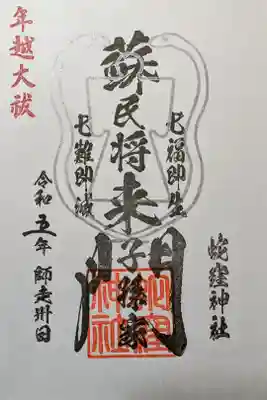 蛇窪神社
七福即生
蘇民将来子孫家門
蛇窪
神社
七難即滅
年越大祓
令和五年 師走卅日